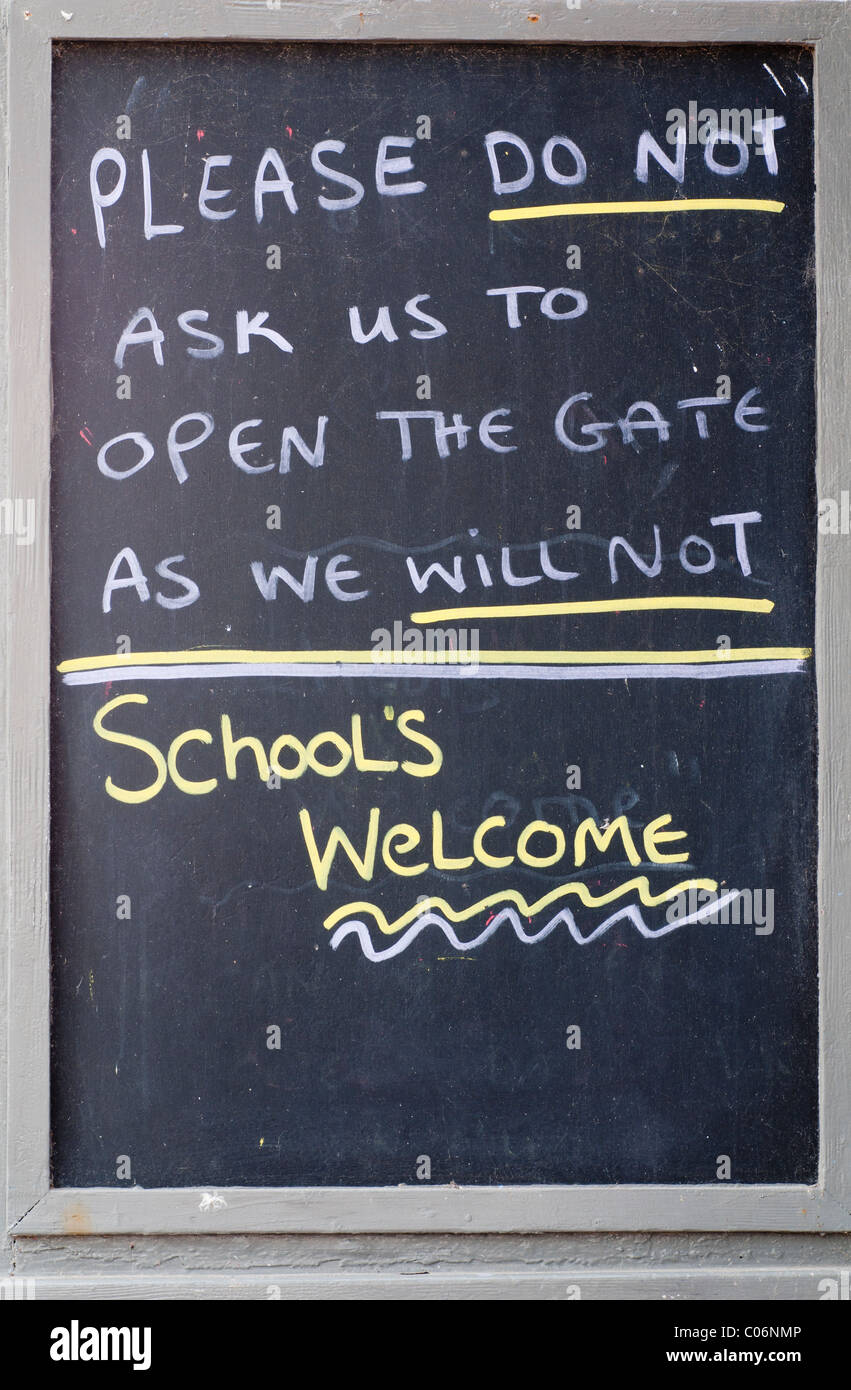 PLEASE DO NOT
ASK US TO
OPEN THE GATE
AS WE WILL NOT
SCHOOL'S
WELCOME
alamy
Image ID: C06NMP
www.alamy.com